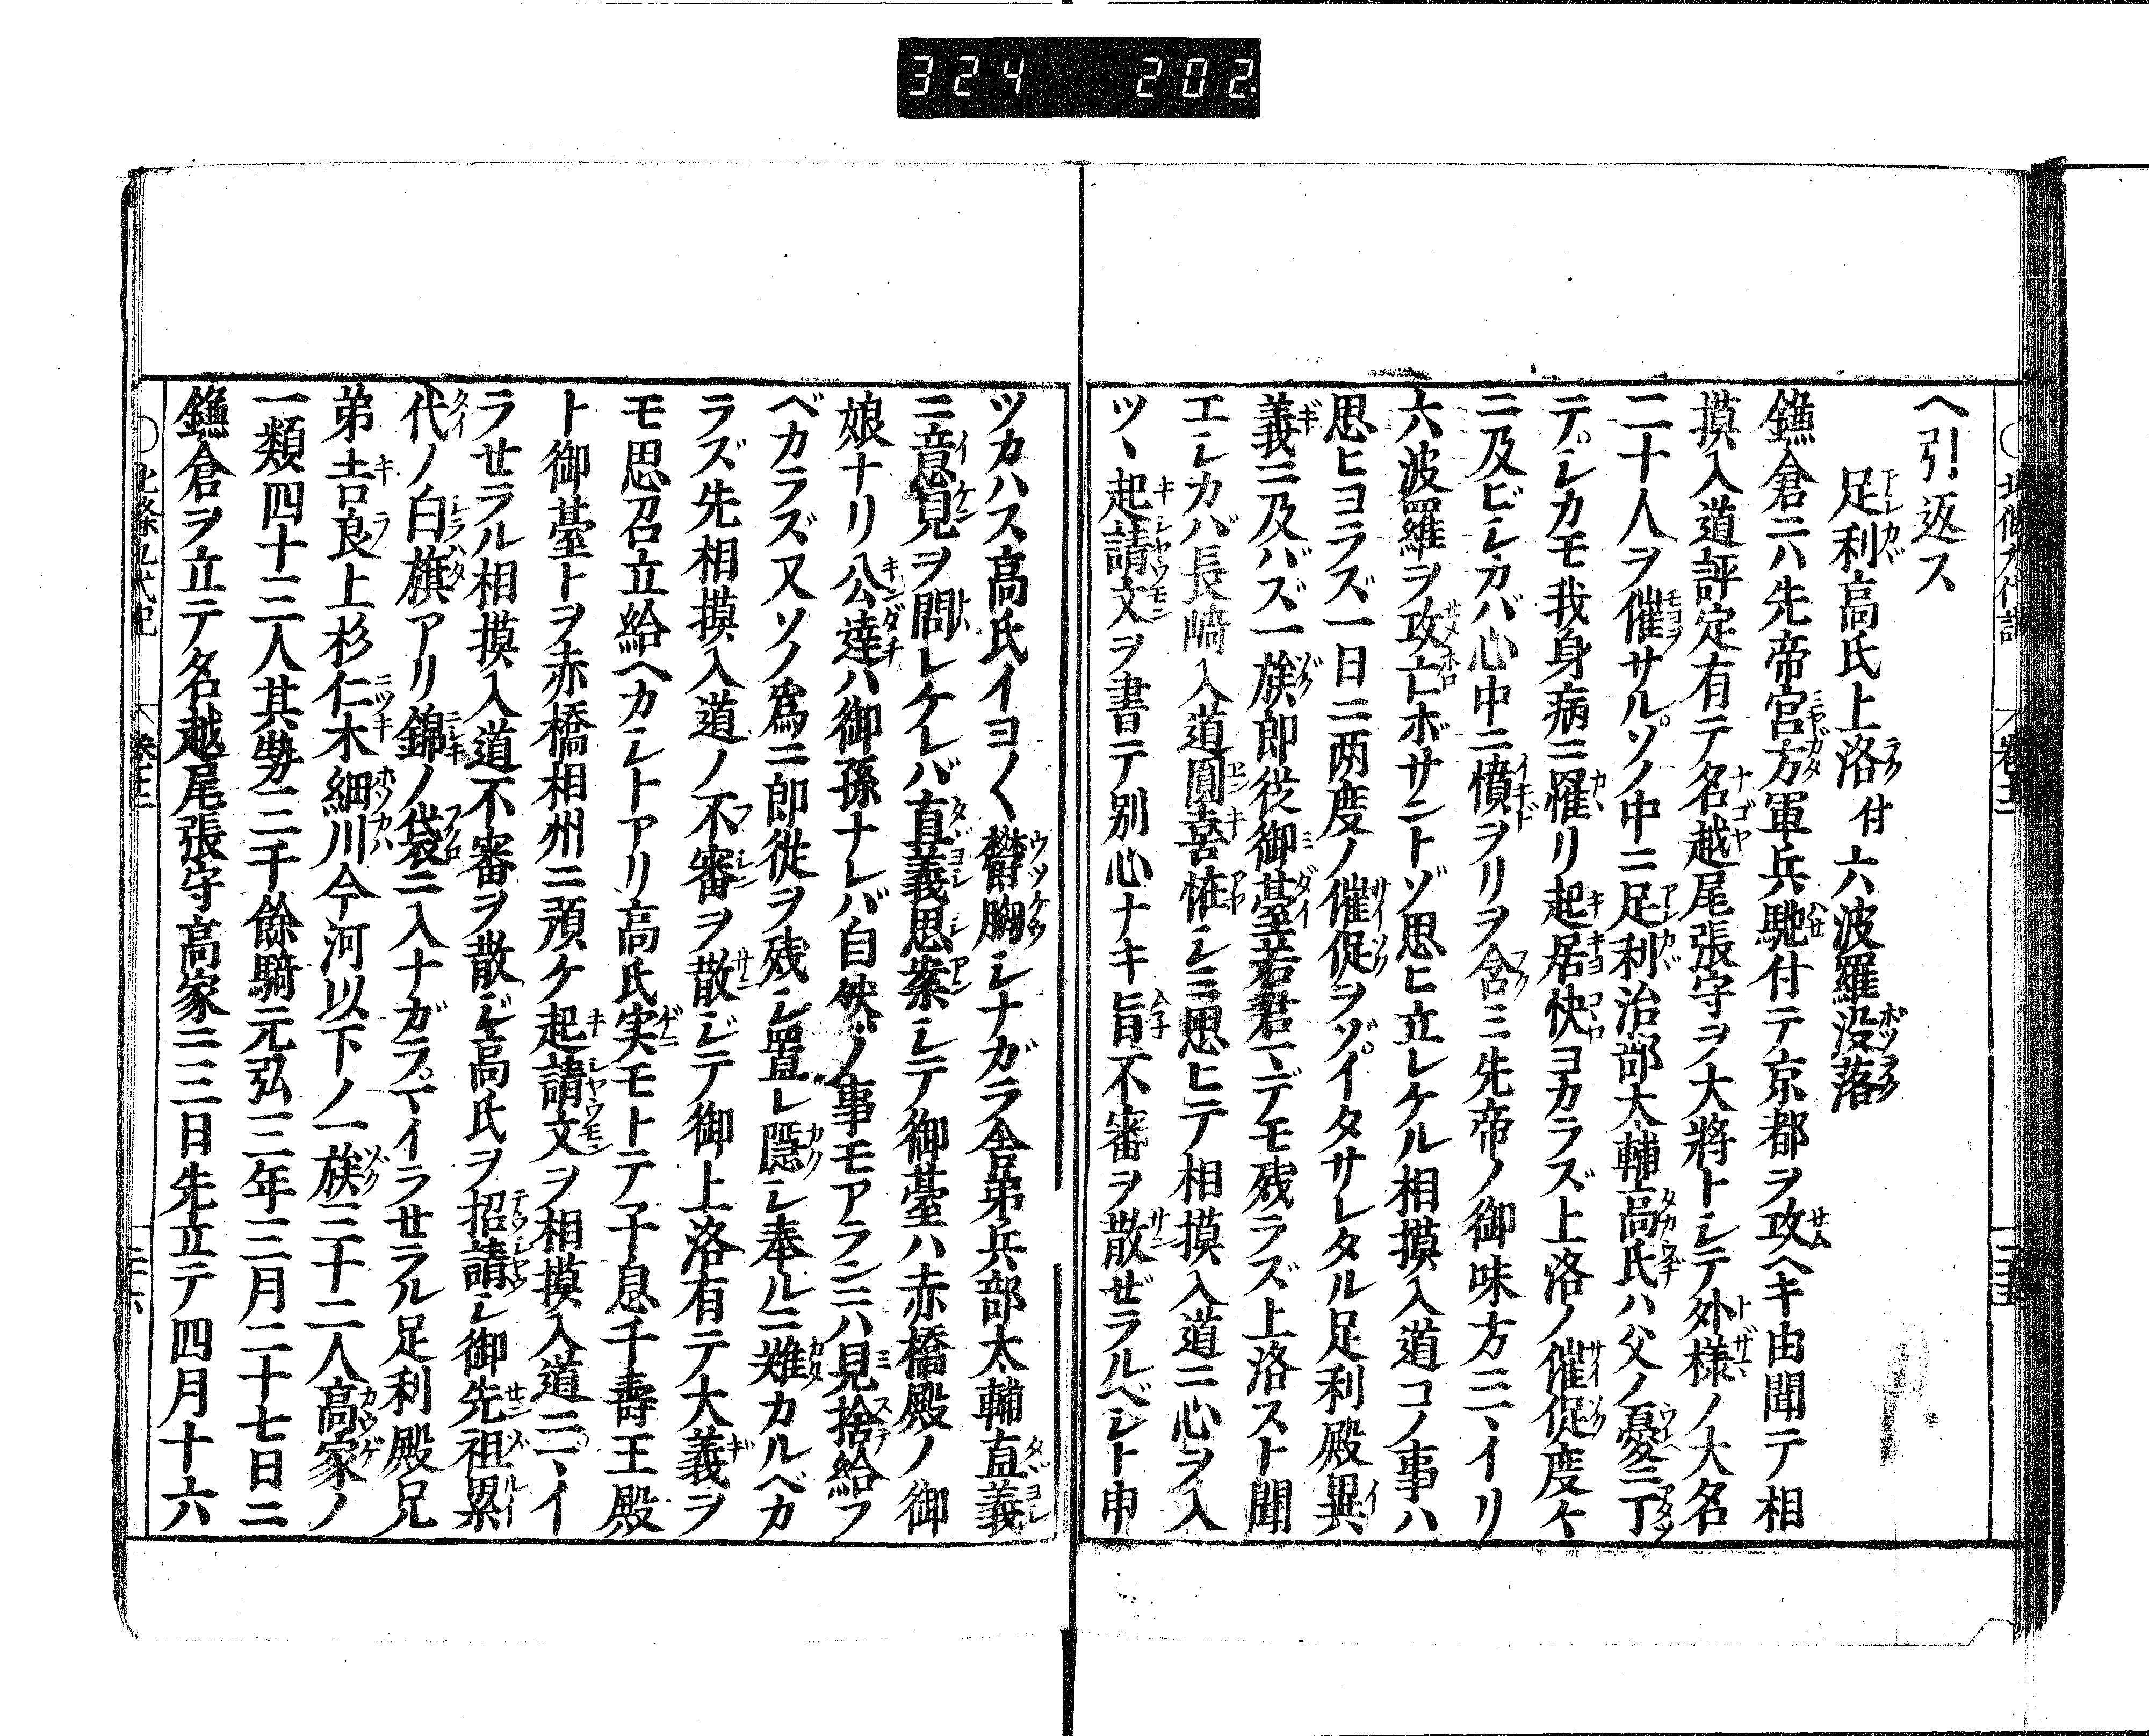 324 202.
ヘ引返ス
足利高氏上洛 付 六波羅没落
鎌倉ニハ先帝宮方軍兵馳付テ京都ヲ攻ヘキ由聞テ相
摸入道評定有テ名越尾張守ヲ大將トシテ外様ノ大名
二十人ヲ催サル。ソノ中ニ足利治部大輔高氏ハ父ノ憂ニ丁
テ。シカモ我身病ニ罹リ起居快ヨカラズ上洛ノ催促度々
ニ及ビシカバ心中ニ憤ヲリヲ含ミ先帝ノ御味方ニマイリ
六波羅ヲ攻亡ボサントゾ思ヒ立レケル相摸入道コノ事ハ
思ヒヨラズ一日ニ両度ノ催促ヲゾイタサレタル足利殿異
義ニ及バズ一族郎従御䑓若君マデモ残ラズ上洛スト聞
エシカバ長崎入道圓喜恠シミ思ヒテ相摸入道ニ心ヲ入
ツヽ起請文ヲ書テ別心ナキ旨不審ヲ散ゼラルベシト申
ツカハス高氏イヨ〱欝胸シナガラ舎弟兵部太輔直義
ニ意見ヲ問レケレバ直義思案シテ御䑓ハ赤橋殿ノ御
娘ナリ公達ハ御孫ナレバ自然ノ事モアランニハ見捨給フ
ベカラズ又ソノ為ニ郎従ヲ残シ置レ隠シ奉ルニ難カルベカ
ラズ先相摸入道ノ不審ヲ散ジテ御上洛有テ大義ヲ
モ思召立給ヘカシトアリ高氏実モトテ子息千壽王殿
ト御䑓トヲ赤橋相州ニ預ケ起請文ヲ相摸入道ニマイ
ラセラル相摸入道不審ヲ散ジ高氏ヲ招請シ御先祖累
代ノ白旗アリ錦ノ袋ニ入ナガラマイラセラル足利殿兄
弟吉良上杉仁木細川今河以下ノ一族三十二人高家ノ
一類四十三人其勢三千餘騎元弘三年三月二十七日ニ
鎌倉ヲ立テ名越尾張守高家ニ三日先立テ四月十六
〇北條九代記 巻十二